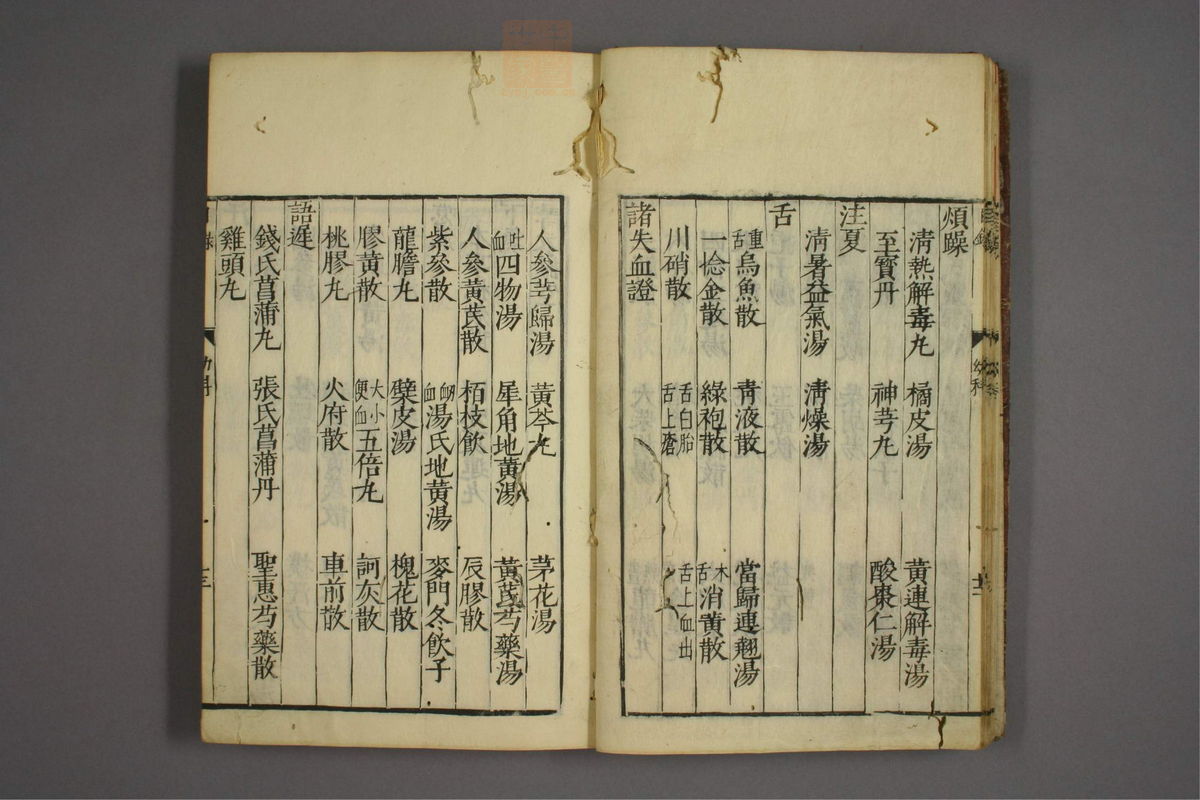 煩躁
清熱解毒丸　橘皮湯　黃連解毒湯
至寶丹　神芎丸　酸棗仁湯
注夏
清暑益氣湯　清燥湯
舌
重舌烏魚散　青液散　當歸連翹湯
一捻金散　綠袍散　木舌消黃散
川硝散　舌白胎舌上瘡　舌上血出
諸失血證
人參芎歸湯　黃芩丸　茅花湯
吐血四物湯　犀角地黃湯　黃芪芍藥湯
人參黃芪散　栢枝飲　辰膠散
紫參散　衂血湯氏地黃湯　麥門冬飲子
龍膽丸　檗皮湯　槐花散
膠黃散　大小便血五倍丸　訶灰散
桃膠丸　火府散　車前散
語遲
錢氏菖蒲丸　張氏菖蒲丹　聖惠芍藥散
雞頭丸
目錄　幼科